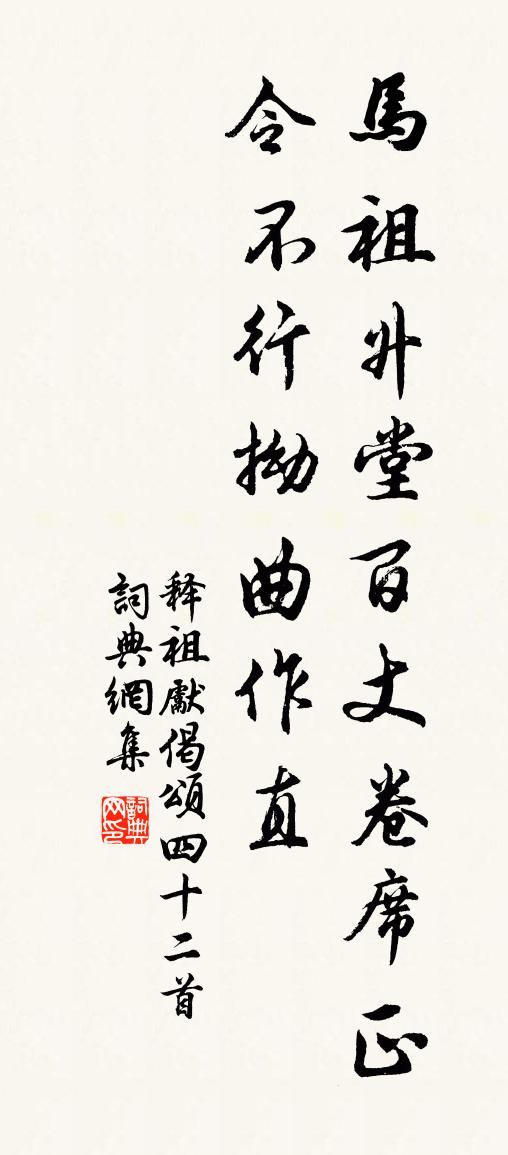 馬祖升堂百丈卷席正
令不行拗曲作直
释祖獻偈頌四十二首
詞典網集
詞典网印